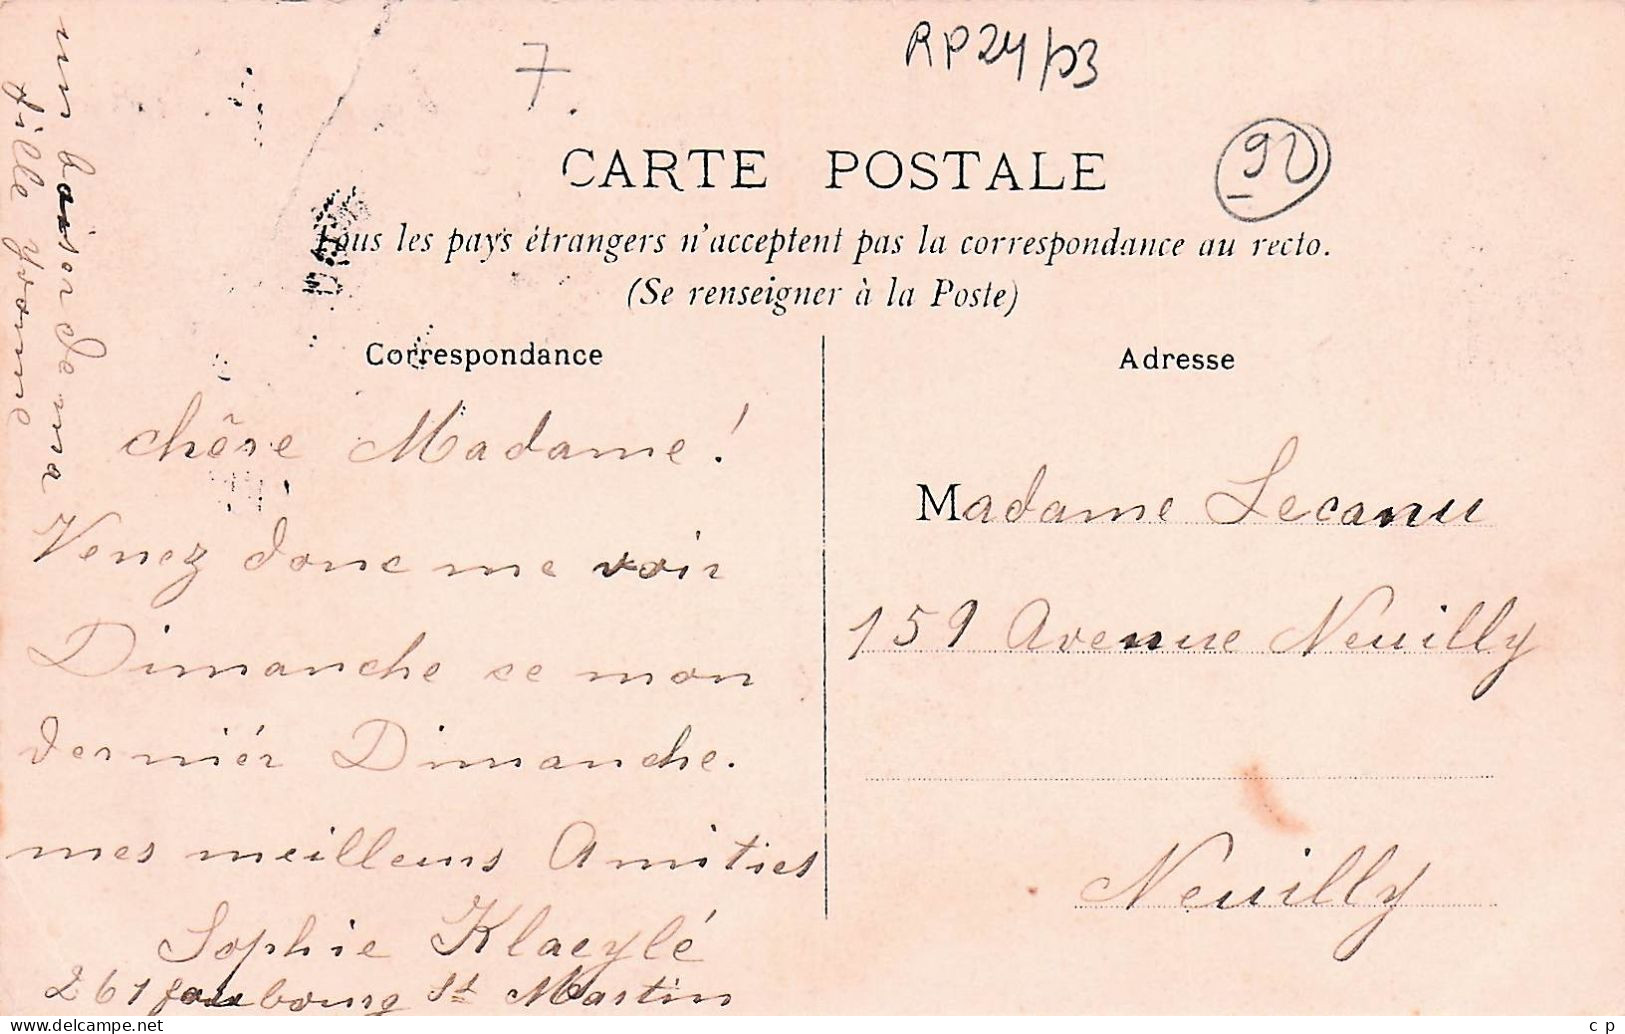 RP24/03
7.
92
CARTE POSTALE
Tous les pays étrangers n'acceptent pas la correspondance au recto.
(Se renseigner à la Poste)
Correspondance
chêre Madame!
Venez donc me voir
Dimanche ce mon
derniér Dimanche.
mes meilleurs Amities
Sophie Klaeylé
261 faubourg St Martin
un baiser de ma
fille Yvonne
Adresse
Madame Lecanu
159 Avenue Neuilly
Neuilly
cp